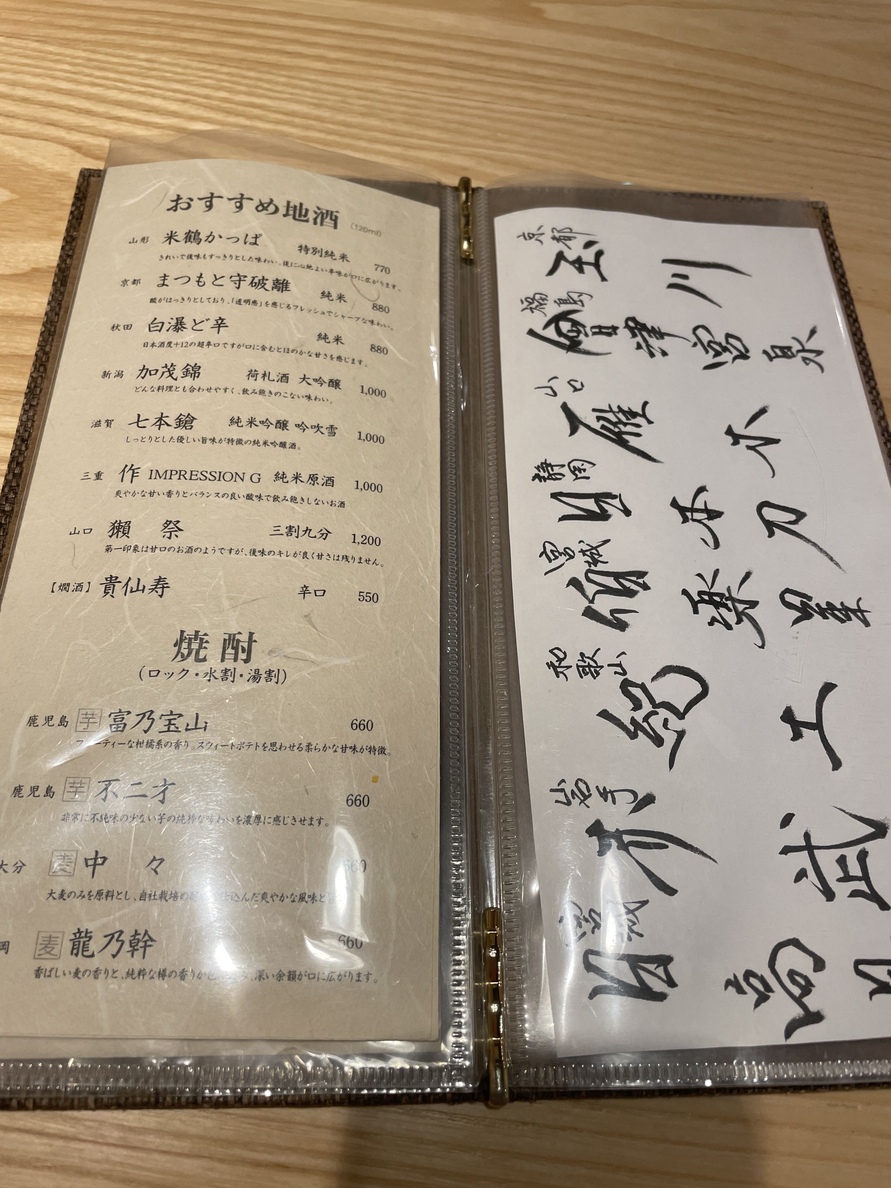 おすすめ地酒 (120ml)
山形 米鶴かっぱ 特別純米 770
きれいで後味もすっきりとした味わい、後に心地よい辛味が口に広がります。
京都 まつもと守破離 純米 880
酸がはっきりとしており、「透明感」を感じるフレッシュでシャープな味わい。
秋田 白瀑ど辛 純米 880
日本酒度+12の超辛口ですが口に含むとほのかな甘さを感じます。
新潟 加茂錦 荷札酒 大吟醸 1,000
どんな料理とも合わせやすく、飲み飽きのこない味わい。
滋賀 七本鎗 純米吟醸 吟吹雪 1,000
しっとりとした優しい旨味が特徴の純米吟醸酒。
三重 作 IMPRESSION G 純米原酒 1,000
爽やかな甘い香りとバランスの良い酸味で飲み飽きしないお酒
山口 獺祭 三割九分 1,200
第一印象は甘口のお酒のようですが、後味のキレが良く甘さは残りません。
【燗酒】 貴仙寿 辛口 550
焼酎
(ロック・水割・湯割)
鹿児島 芋 富乃宝山 660
ーティーな柑橘系の香り。スウィートポテトを思わせる柔らかな甘味が特徴。
鹿児島 芋 不二才 660
非常に不純味の少ない芋の純粋な味わいを濃厚に感じさせます。
大分 麦 中々
大麦のみを原料とし、自社栽培の 込んだ爽やかな風味と
岡 麦 龍乃幹 660
香ばしい麦の香りと、純粋な樽の香りが 深い余韻が口に広がります。
京都 玉川
福島 會津宮泉
山口 雁木
静岡
宮城
和歌山 紀土
岩手
宮城